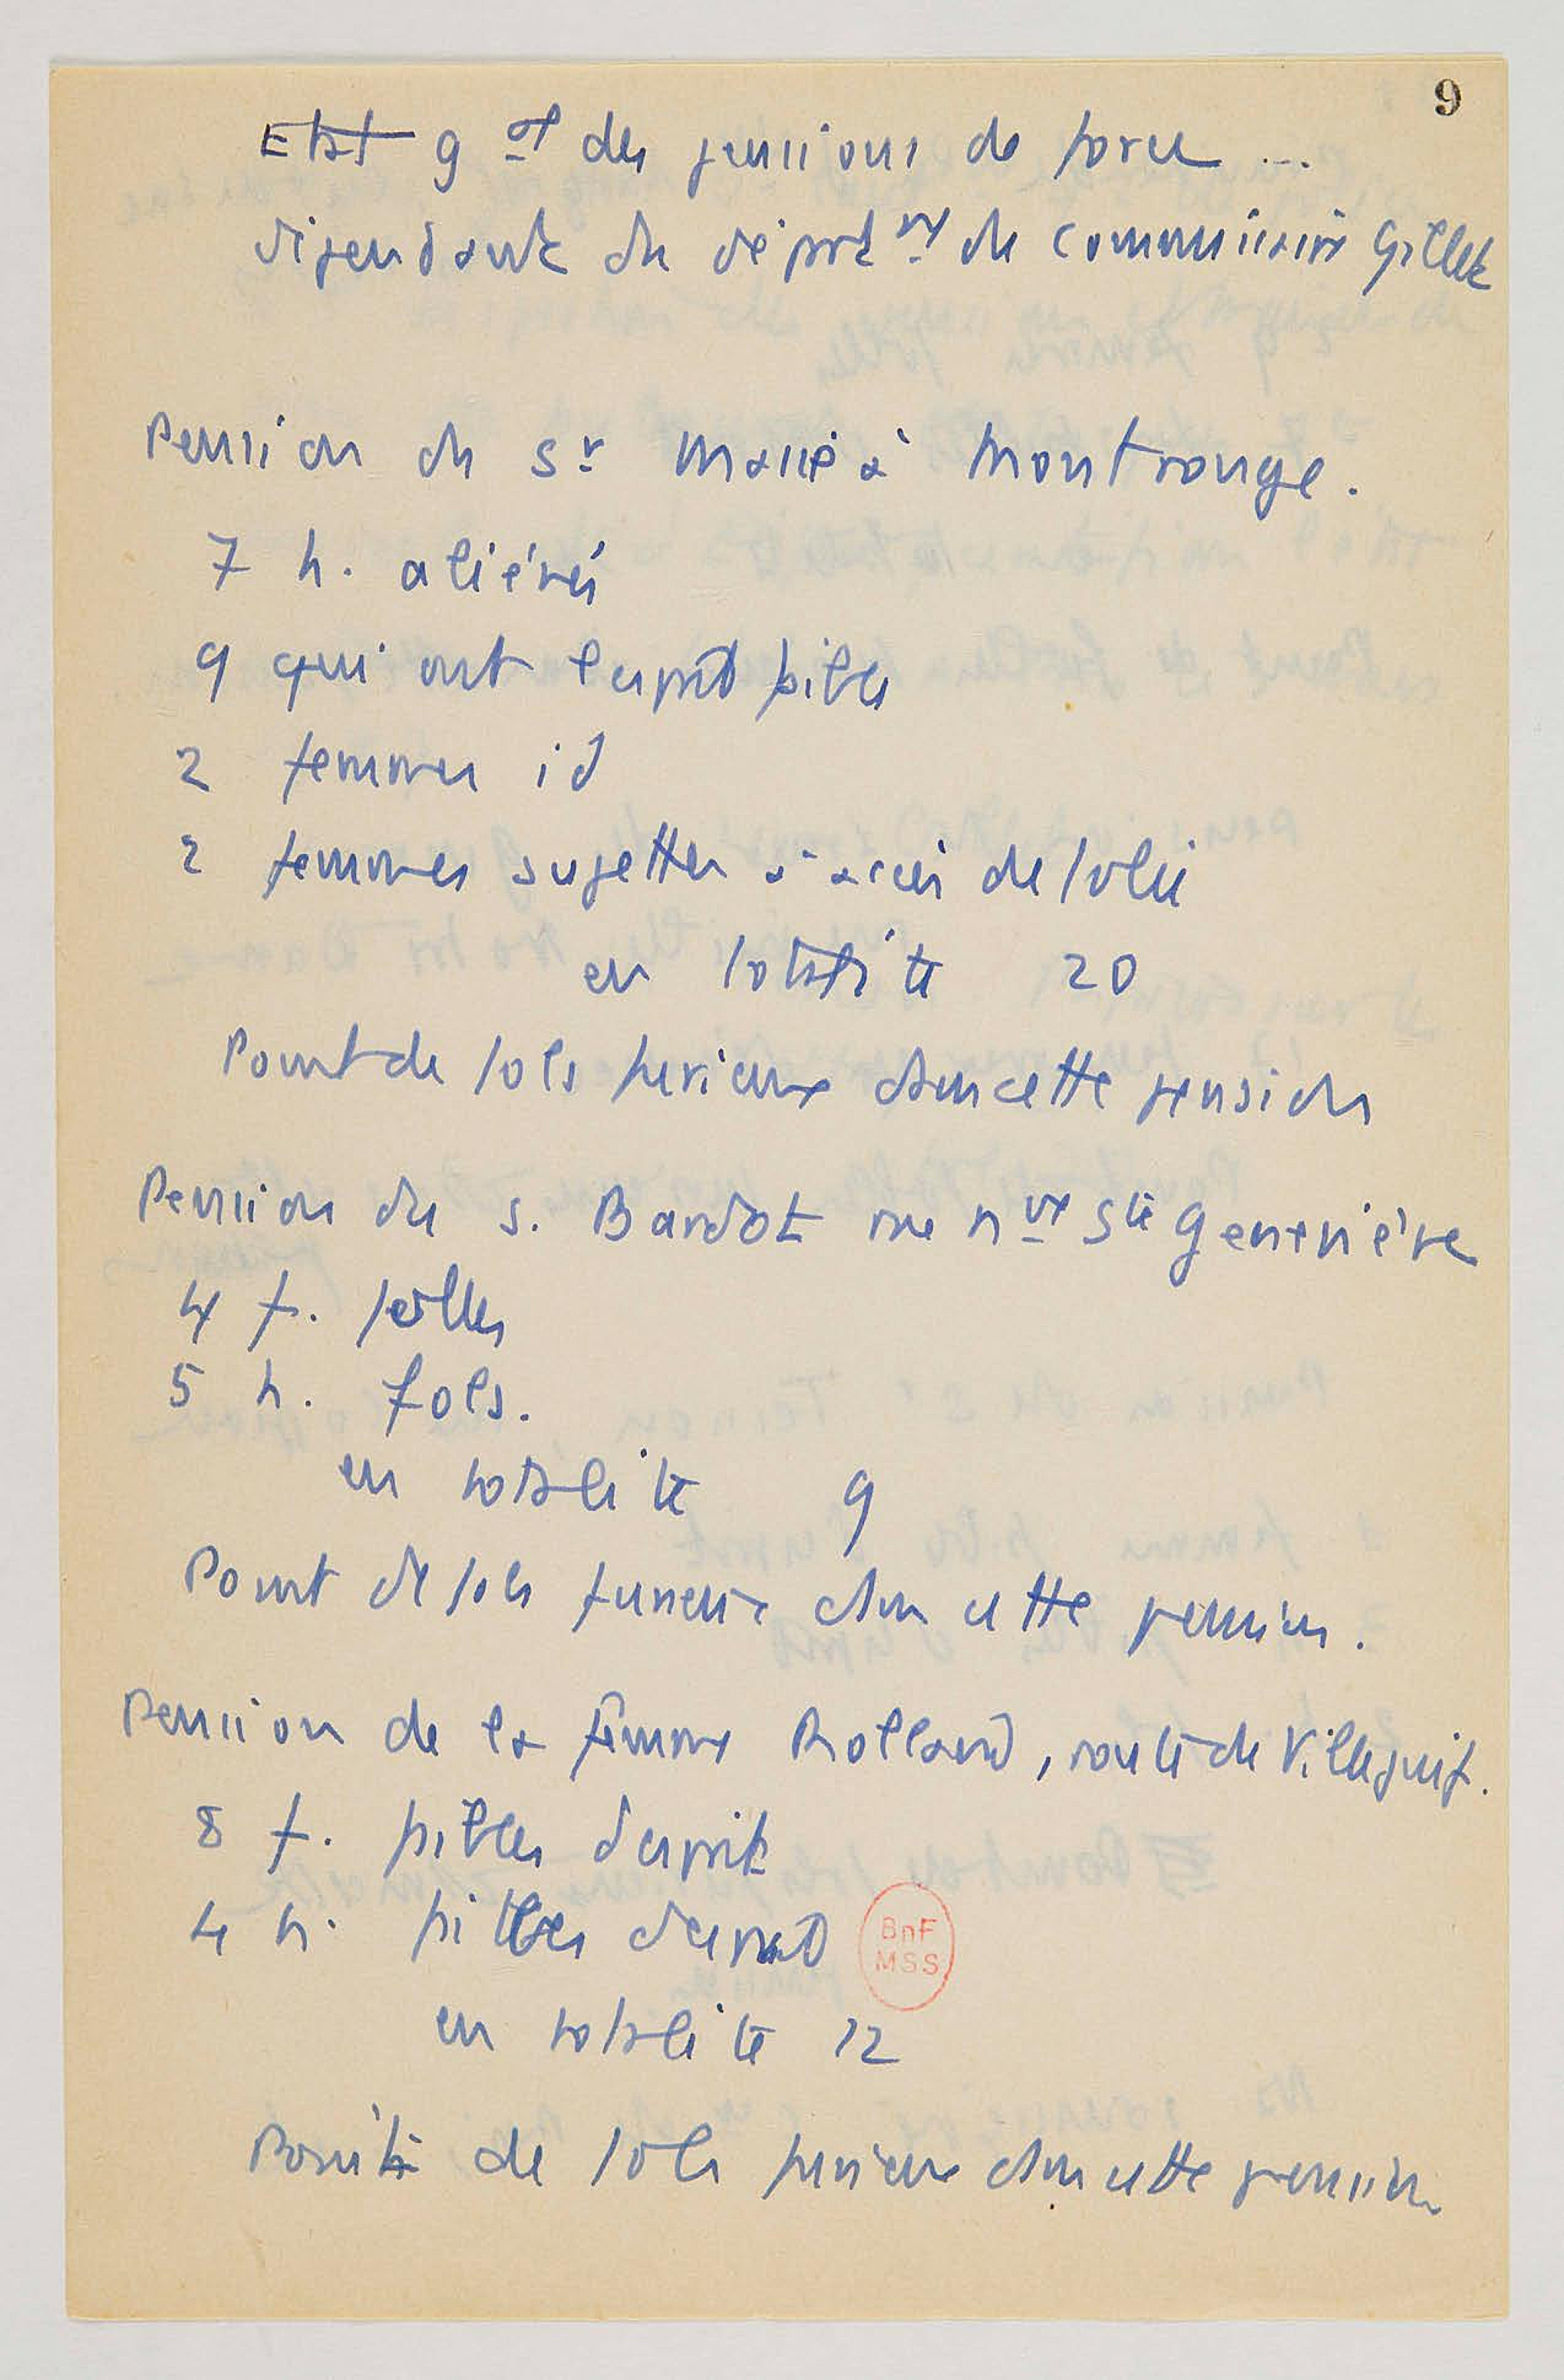 9
Etat gal des pensions de force ...
dépendant du dépt du commissaire Gillet
Pension du Sr Massé à Montrouge.
7 h. aliénés
9 qui ont l'esprit faible
2 femmes id
2 femmes sujettes à accès de folie
en totalité 20
Point de fols furieux dans cette pension
Pension du s. Bardot rue nve Ste Geneviève
4 f. folles
5 h. fols.
en totalité 9
Point de fols furieux dans cette pension.
Pension de la femme Rolland, route de Villejuif.
8 f. faibles d'esprit
4 h. faibles d'esprit
BnF
MSS
en totalité 12
Point de fols furieux dans cette pension